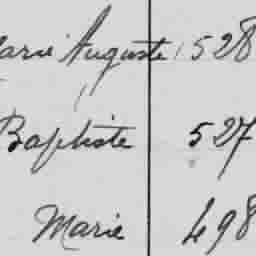 Marie Auguste 528
Baptiste 527
Marie 498